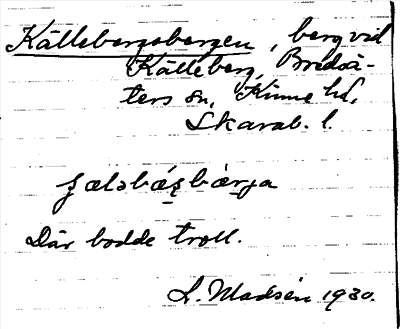 Källebergsbergen, berg vid
Källeberg, Bredsä-
ters sn, Kinne hd,
Skarab. l.
Där bodde troll.
L. Madsén 1930.